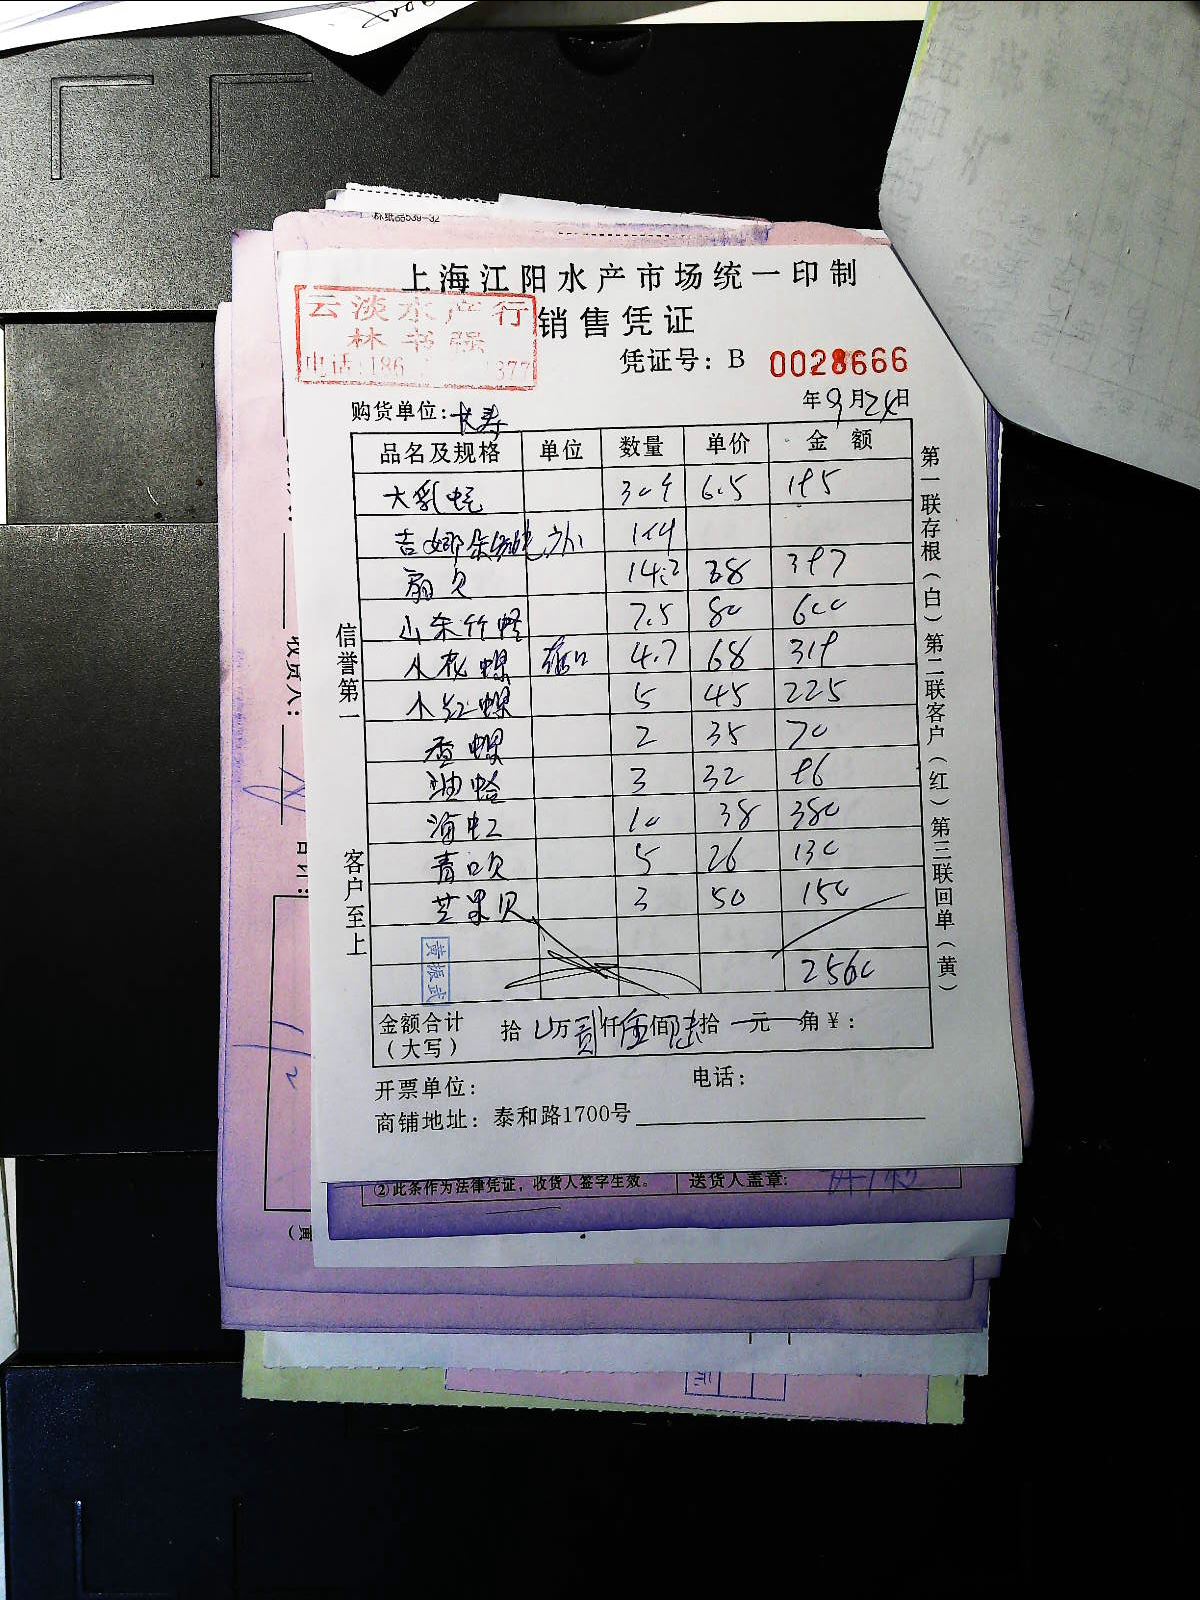 上海江阳水产市场统一印制
云淡水产行
林书强
销售凭证
凭证号：B 0028666
购货单位：长寿 年9月24日
品名及规格 单位 数量 单价 金额
大乳蚝 30个 6.5 195
吉娜朵 1个
扇贝 14.2 28 397
山东竹蛏 7.5 80 600
小花螺 4.7 68 319
小红螺 5 45 225
香螺 2 35 70
油蛤 3 32 96
海虹 10 38 380
青口贝 5 26 130
芒果贝 3 50 150
黄振武
2560
金额合计（大写） 拾 万贰仟伍佰陆拾 元 角￥：
开票单位： 电话：
商铺地址：泰和路1700号
信誉第一
客户至上
第一联存根（白）第二联客户（红）第三联回单（黄）
②此条作为法律凭证，收货人签字生效。 送货人盖章：
收货人：